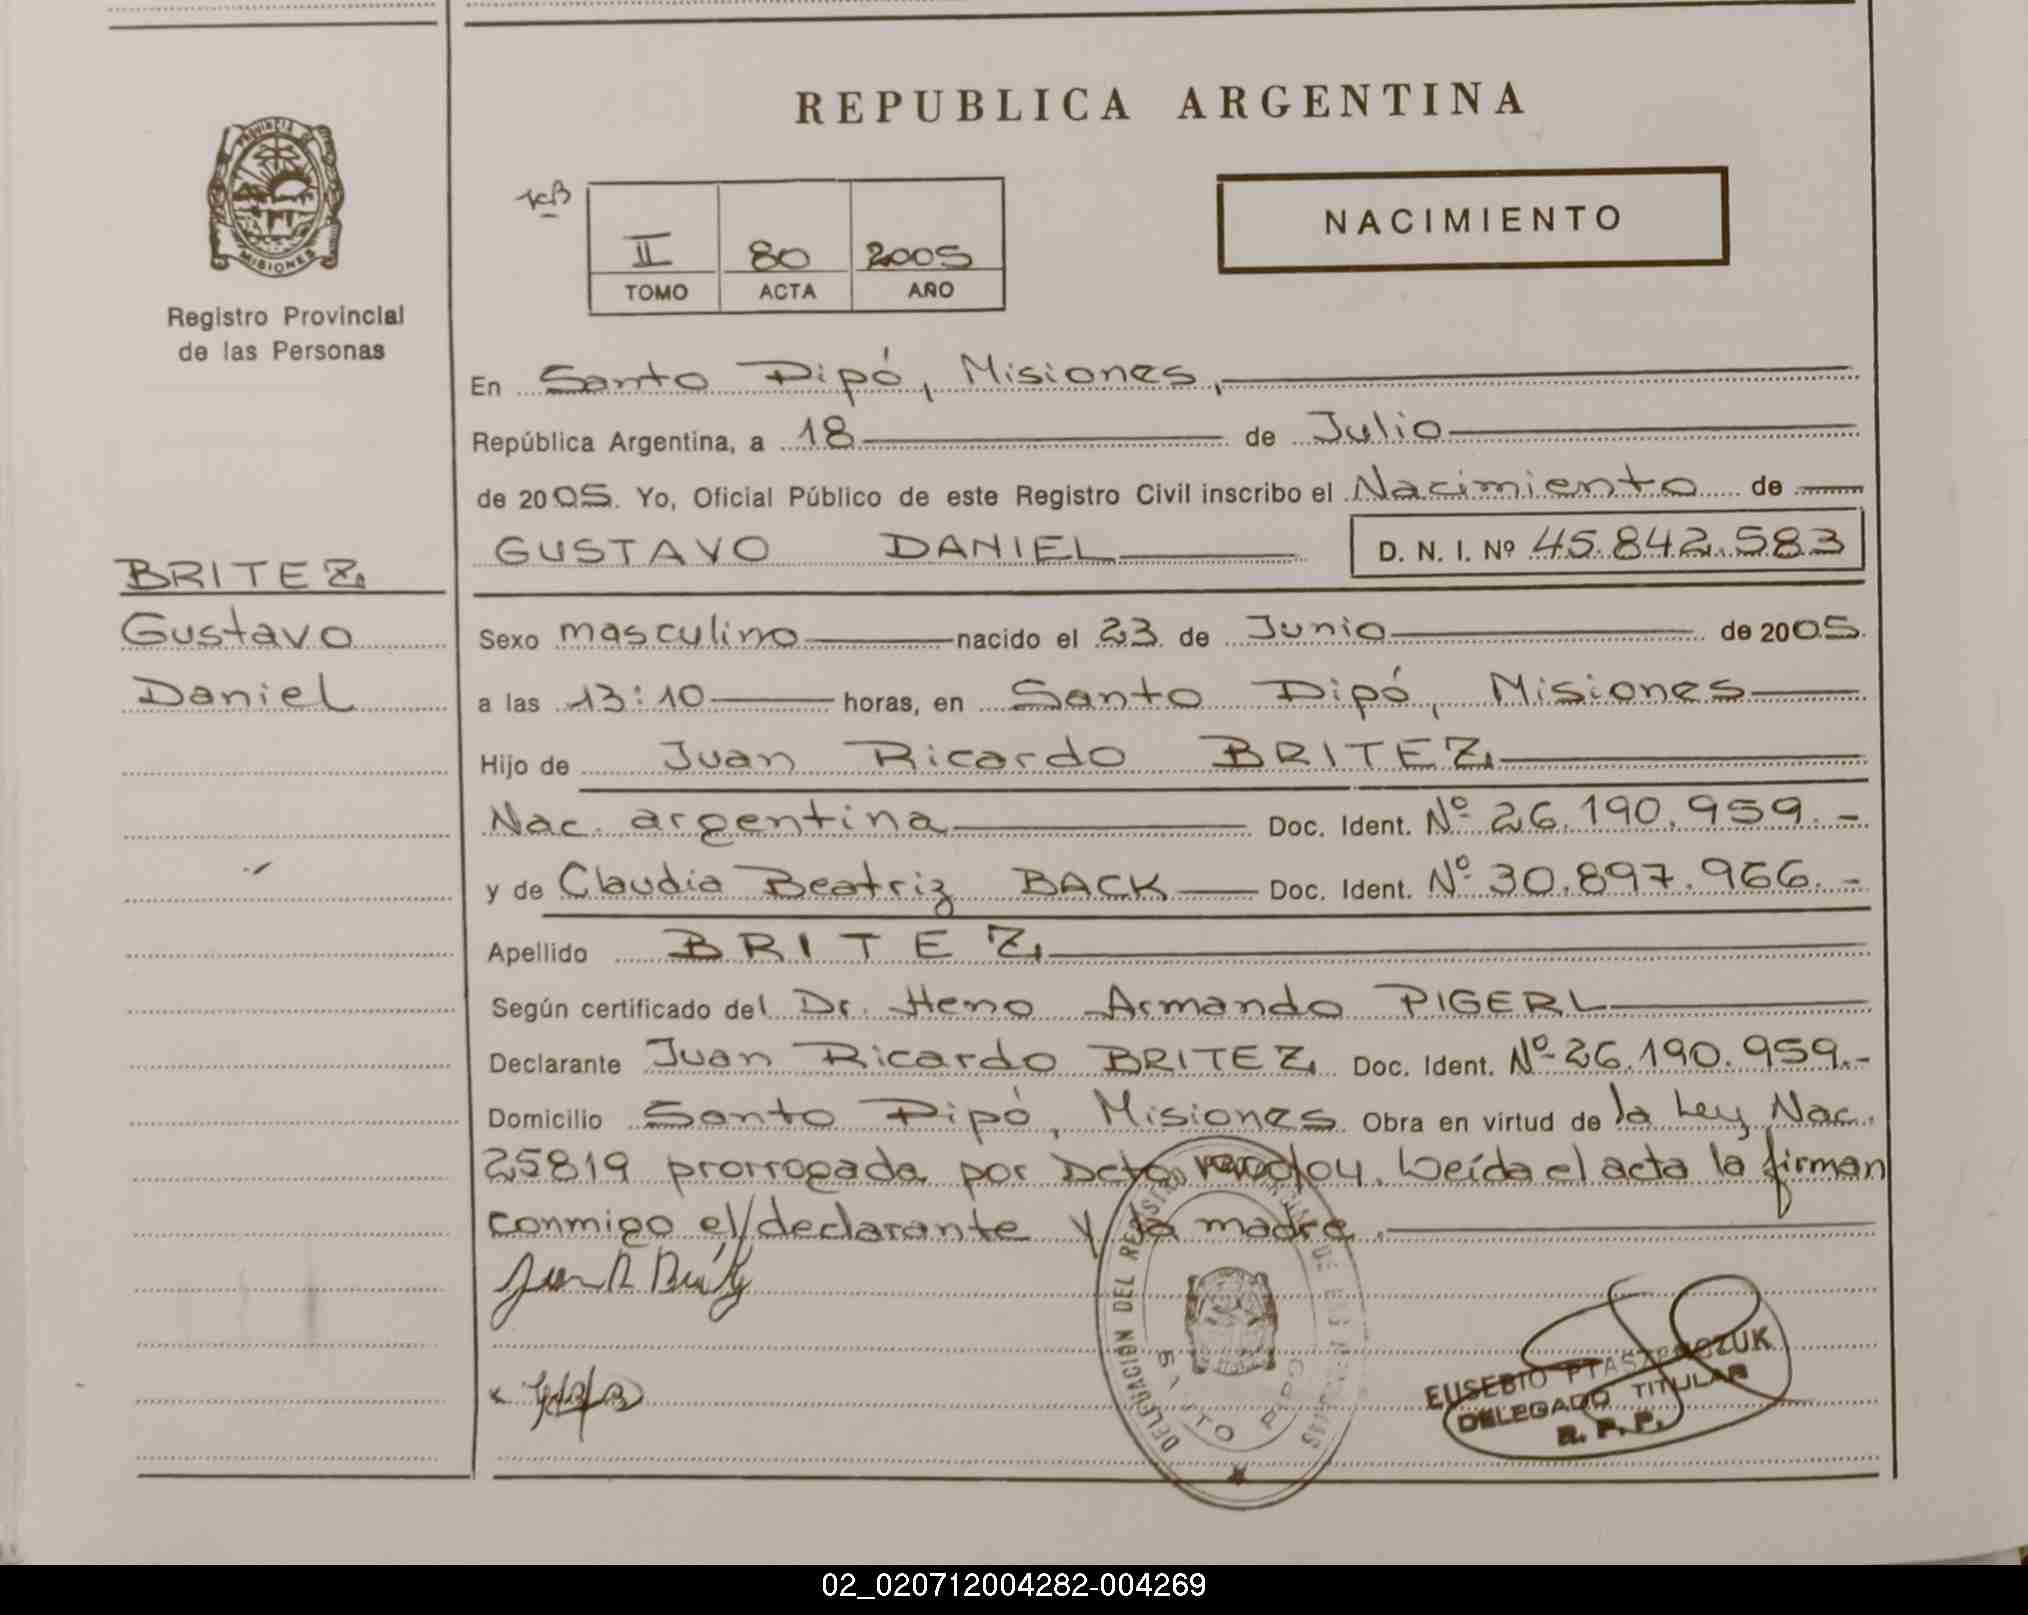 REPUBLICA ARGENTINA
PROVINCIA DE
MISIONES
Registro Provincial
de las Personas
NACIMIENTO
II 80 2005
TOMO ACTA AÑO
En Santo Pipó, Misiones,
República Argentina, a 18 de Julio
de 2005. Yo, Oficial Público de este Registro Civil inscribo el Nacimiento de
GUSTAVO DANIEL D. N. I. Nº 45.842.583
BRITEZ
Gustavo
Daniel
Sexo masculino nacido el 23 de Junio de 2005
a las 13:10 horas, en Santo Pipó, Misiones
Hijo de Juan Ricardo BRITEZ
Nac. argentina Doc. Ident. Nº 26.190.959.-
y de Claudia Beatriz BACK Doc. Ident. Nº 30.897.966.-
Apellido BRITEZ
Según certificado del Dr. Heno Armando PIGERL
Declarante Juan Ricardo BRITEZ Doc. Ident. Nº 26.190.959.-
Domicilio Santo Pipó, Misiones. Obra en virtud de la Ley Nac.
25819 prorrogada por Dcto. Leída el acta la firman
conmigo el/declarante y/la madre.
DELEGACION DEL REGISTRO DE LAS
SANTO PIPO
EUSEBIO
DELEGADO TITULAR
R. P. P.
02_020712004282-004269